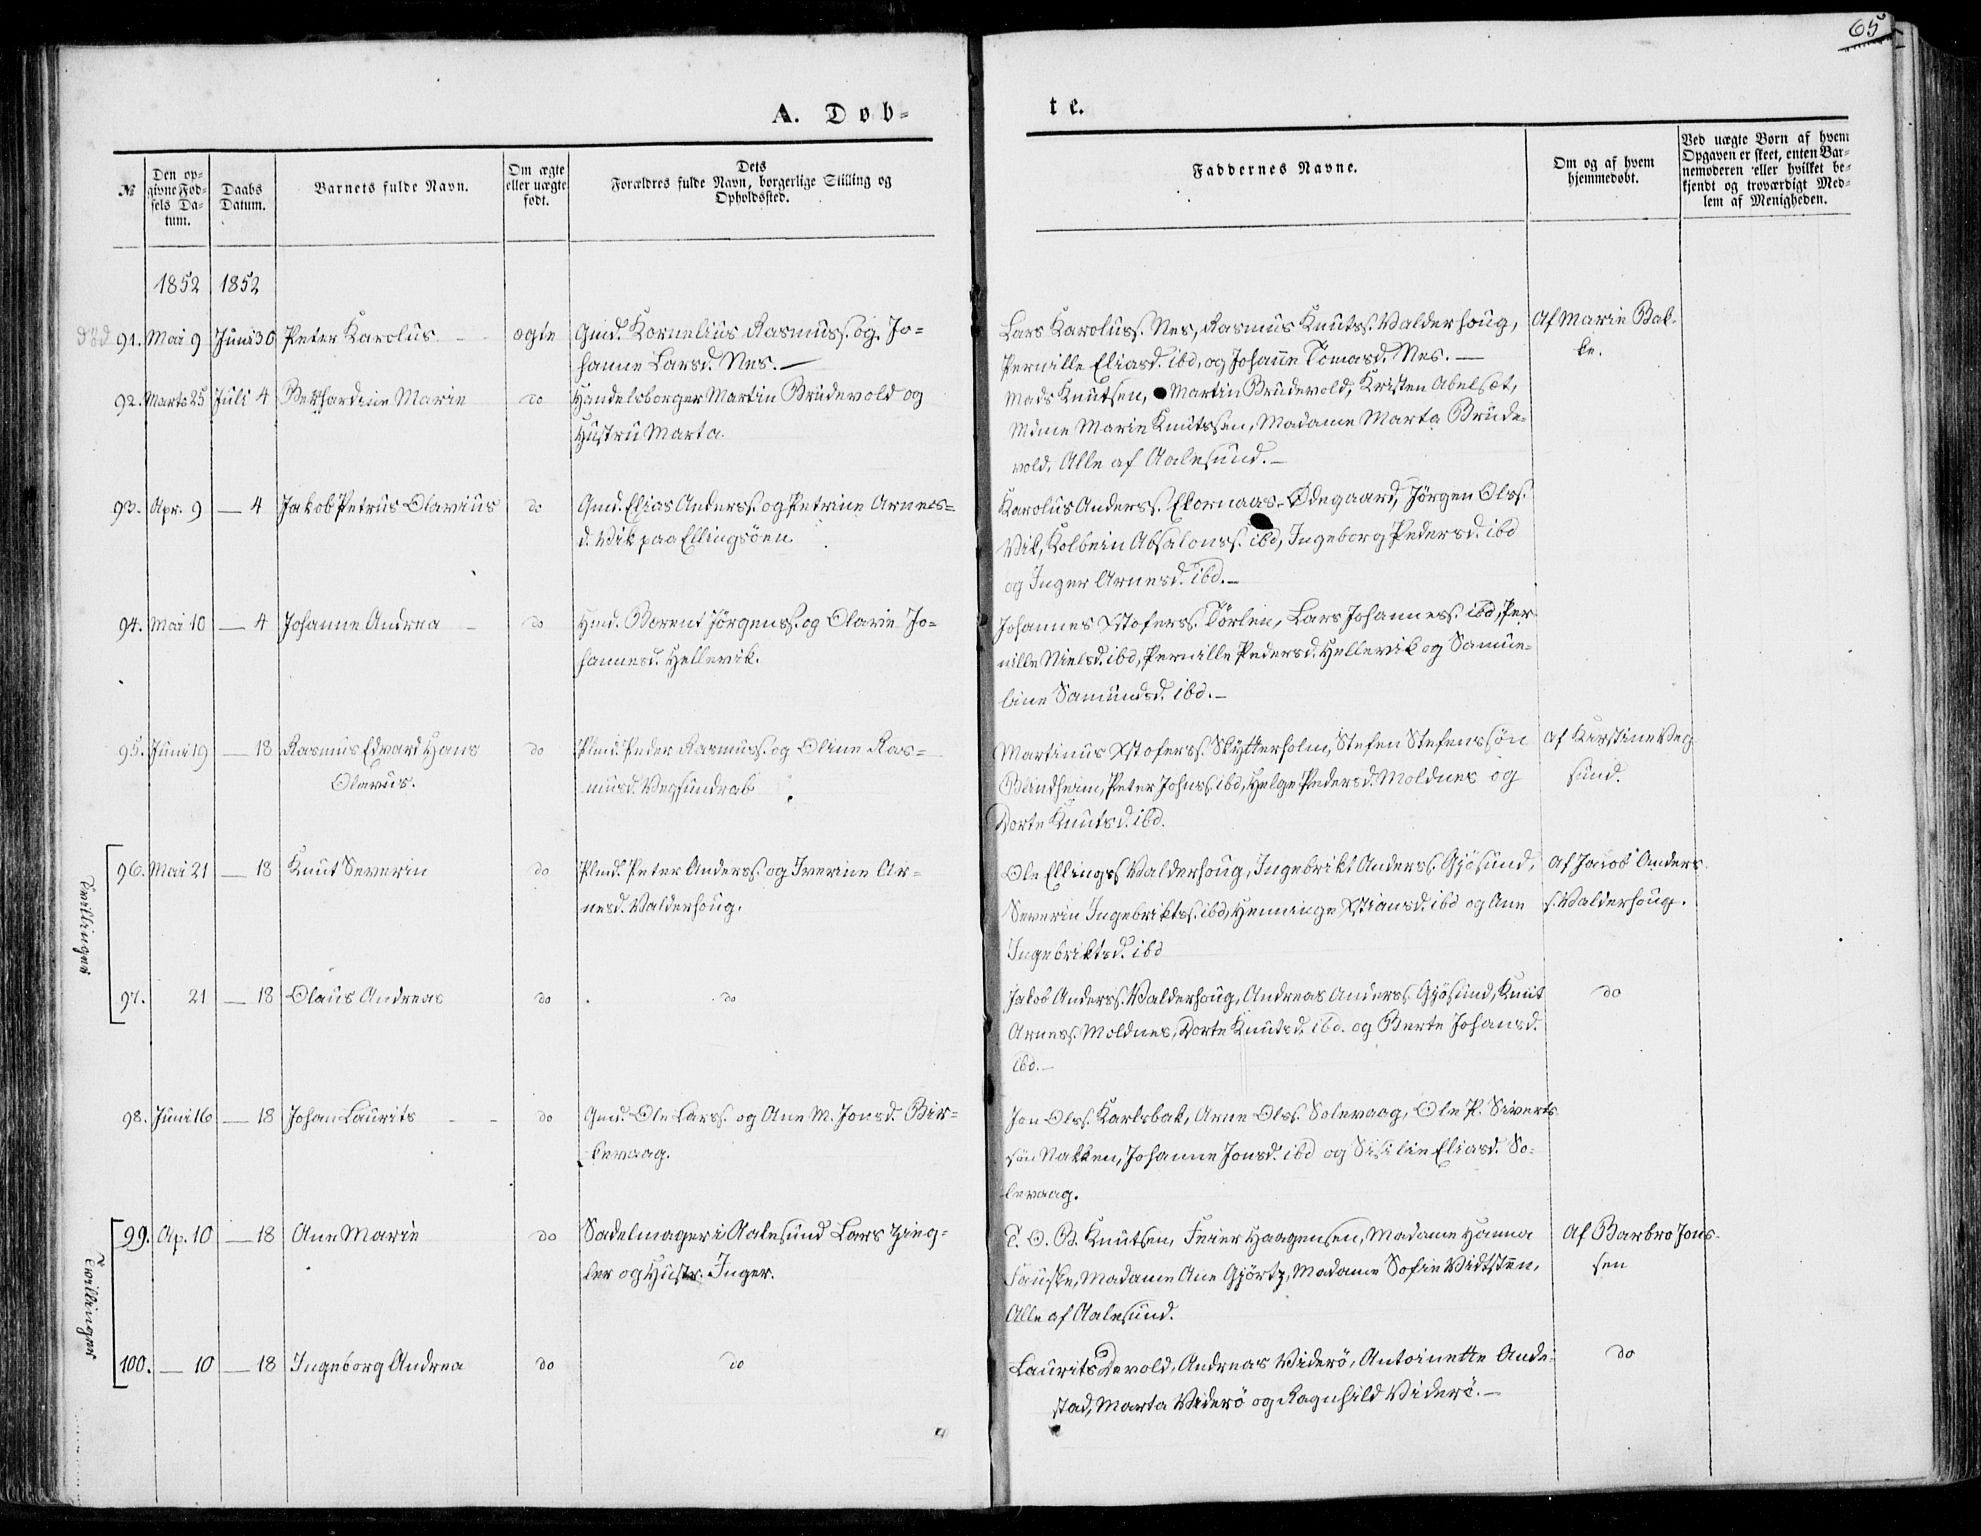 65
A. Døb-
te.
№
Den op-
givne Fød-
sels Da-
tum.
Daabs
Datum.
Barnets fulde Navn.
Om ægte
eller uægte
født.
Dets
Forældres fulde Navn, borgerlige Stilling og
Opholdssted.
Faddernes Navne.
Om og af hvem
hjemmedøbt.
Ved uægte Børn af hvem
Opgaven er skeet, enten Bar-
nemoderen eller hvilket be-
kjendt og troværdigt Med-
lem af Menigheden.
1852 1852
død 91. Mai 9 Juni 30 Peter Karolus ægte Gmd. Kornelius Rasmuss. og Jo-
hanne Larsd. Nes.
Lars Karoluss. Nes, Rasmus Knutss. Valderhoug,
Pernille Eliasd. ibd, og Johanne Tomasd. Nes.
Af Marie Bak-
ke.
92. Marts 25 Juli 4 Berhardine Marie do Handelsborger Martin Brudevold og
Hustru Marta.
Mads Knutsen, Martin Brudevold, Kristen Abelset,
Mdme Marie Knutssen, Madame Marta Brude-
vold, Alle af Aalesund.
93. Apr. 9 — 4 Jakob Petrus Olavius do Gmd. Elias Anderss. og Petrine Arnes-
d. Vik paa Ellingsöen
Karolus Anderss. Ekornaas-Ødegaard, Jörgen Olss.
Vik, Kolbein Absalonss. ibd, Ingeborg Pedersd. ibd
og Inger Arnesd. ibd.
94. Mai 10 — 4 Johanne Andrea do Hmd. Berent Jörgenss. og Olavie Jo-
hannesd. Hellevik.
Johannes Xstoferss. Törlen, Lars Johanness. ibd, Per-
nille Nielsd. ibd, Pernille Pedersd. Hellevik og Samue-
line Samundsd. ibd.
95. Juni 19 — 18 Rasmus Edvard Hans
Olavus.
do Plmd. Peder Rasmuss. og Oline Ras-
musd. Vegsundrab
Martinus Xstoferss. Skytterholm, Stefen Stefenssøn
Blindheim, Peter Johnss. ibd, Helge Pedersd. Moldnes og
Dorte Knutsd. ibd.
Af Kirstine Veg
sund.
Tvillinger
96. Mai 21 — 18 Knut Severin do Plmd. Peter Anderss. og Iverine Ar-
nesd. Valderhoug.
Ole Ellingss. Valderhoug, Ingebrikt Anderss. Gjösund,
Severin Ingebriktss. ibd, Henninge Xstiansd. ibd og Ane
Ingebriktsd. ibd
Af Jacob Anders
s. Valderhoug.
97. 21 — 18 Olaus Andreas do do
Jakob Anderss. Valderhoug, Andreas Anderss. Gjösund, Knut
Arness. Moldnes, Dorte Knutsd. ibd. og Berte Johansd.
ibd.
do
98. Juni 16 — 18 Johan Laurits do Gmd. Ole Larss. og Ane M. Jonsd. Bir-
kevaag.
Jon Olss. Karlsbak, Arne Olss. Solevaag, Ole P. Siverts
søn Nakken, Johanne Jonsd. ibd og Sisilie Eliasd. So-
levaag.
Tvillinger
99. Ap. 10 — 18 Ane Marie do Sadelmager i Aalesund Lars Zing-
ler og Hustr. Inger.
P. O. B. Knutsen, Feier Haagensen, Madame Hanna
Fauske, Madame Ane Gjörtz, Madame Sofie Vidsten,
Alle af Aalesund.
Af Barbro Jons-
sen
100. — 10 — 18 Ingeborg Andrea do do
Laurits Devold, Andreas Viderö, Antoinette Ande-
stad, Marta Viderö og Ragnhild Viderö.
do